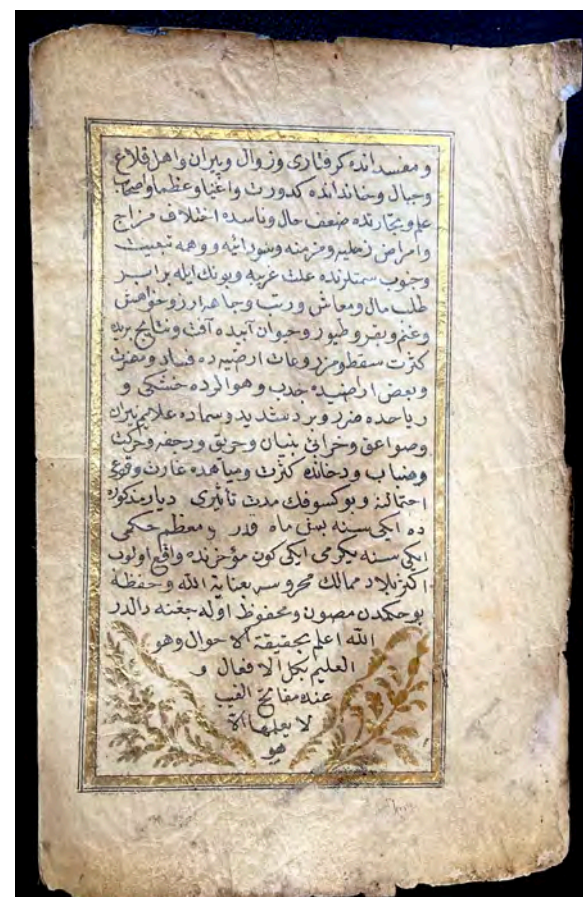 و مفسدانده كرفتارى وزوال و پيران واهل قلاع
وجبال وخاندانده كدورت واغنيا وعظما واصحاب
علم وتجارتده ضعف حال وناسده اختلاف مزاج
وامراض زحليه ومزمنه وسودائيه ووهمه تبعيت
وجنوب سمتلرنده علت غريبه وبونك ايله برابر
طلب مال ومعاش ورتب وجاهه آرزو خواهش
وغنم وبقر وطيور وحيوان آبيده آفت ونتايج بريه
كثرت سقط ومزروعات ارضيه ده فساد ومضرت
وبعض اراضيده جدب وهوالرده خشكى و
رياحده ضرر وبرد شديد وسماده علايم نيران
وصواعق وخرابئ بنيان وحريق ورجفه وحركت
وضباب ودخانده كثرت ومياهده غارت وقوعى
احتمالنه وبو كسوفك مدت تاثيرى ديار مذكوره
ده ايكى سنه بش ماه قدر و معظم حكمى
ايكى سنه يكرمى ايكى كون مؤخرنده واقع اولوب
اكثر بلاد ممالك محروسه بعناية الله وحفظه
بو حكمدن مصون ومحفوظ اوله جغنه دالدر
الله اعلم بحقيقة الاحوال وهو
العليم بكل الافعال و
عنده مفاتح الغيب
لا يعلمها الا
هو